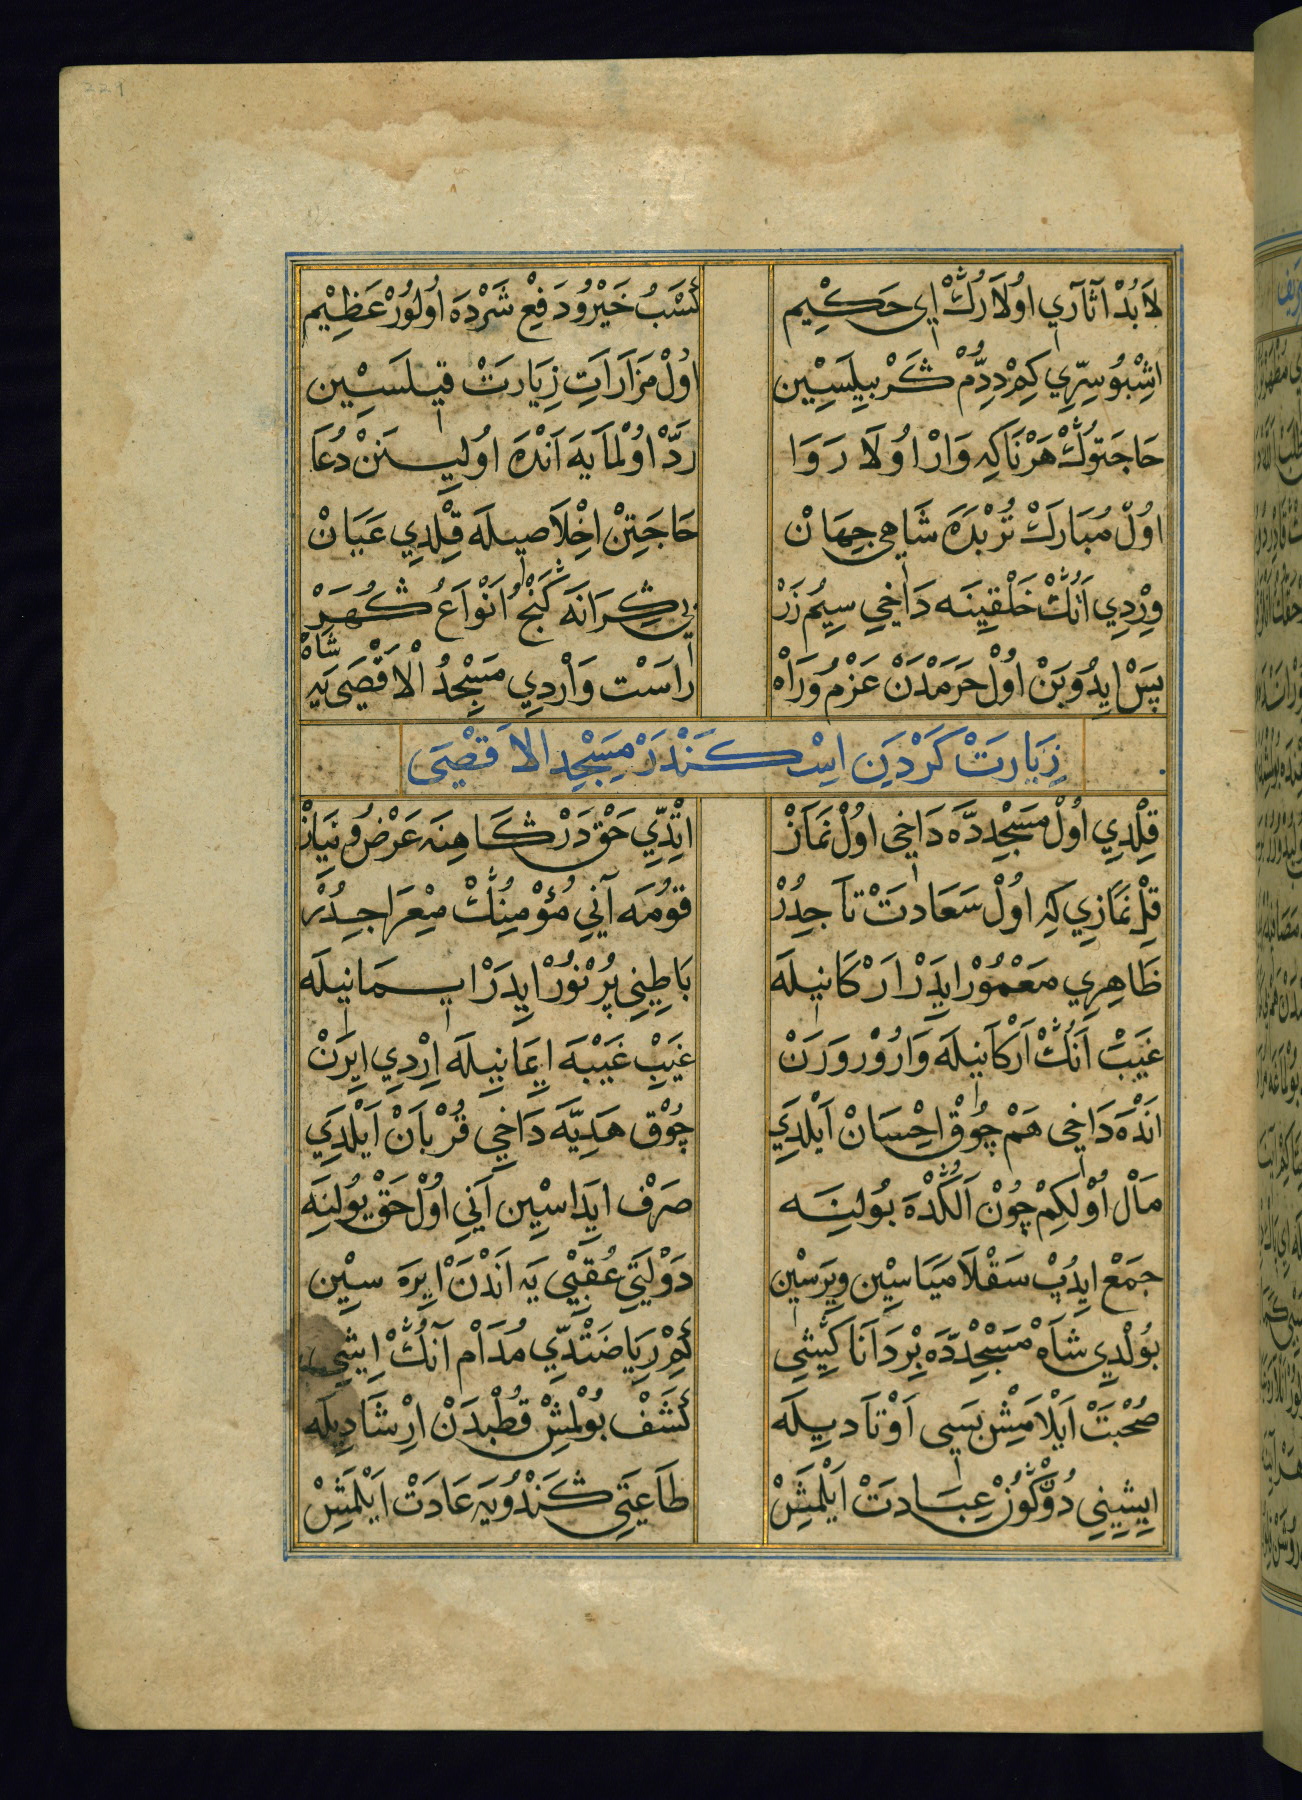 229
لَابُدْ آثَارِي اوُلَارُڭْ اِي حَكِيم كَسْبُ خَيْرُو دَفِعْ شَرْدَه اُولُورْ عَظِيْم
اشْبُو سِرِّي كِمْ دِدُمْ ڭَرْ بِيلَسِيْن اوُلْ مَزَارَاتِ زِيَارَتْ قيلسَيْن
حَاجَتوُڭْ هَرْ نَاكِه وَارْ اوُلَا رَوَا رَدّْ اوُلْمَايَه اَنْدَه اوُلِيسَنْ دُعَا
اوُلْ مُبَارَكْ تُرْبَدَه شَاهِ جِهَانْ حَاجَتِنْ اِخْلَاصِيلَه قِلْدِي عَيَانْ
وِرْدِي اَنُڭْ خَلْقِينَه دَاخِي سِيمُ زَرْ بِي ڭِرَانَه كَنْجُ اَنْوَاعُ ڭُهَرْ
پَسْ ايِدُوبَنْ اوُلْ حَرَمْدَنْ عَزْمُ وَرَاهْ رَاسَتْ وَارْدِي مَسْجِدُ الْاَقْصَى يَه شَاهْ
زِيَارَتْ كَرْدَنِ اسْكَنْدَرْ مَسْجِدِ الاَقْصَى
قِلْدِي اوُلْ مَسْجِدِدَه دَاخِي اوُلْ نَمَازْ اِتْدِي حَقْ دَرْڭَاهِنَه عَرْضُ و نِيَازْ
قِلْ نَمَازِي كِه اوُلْ سَعَادَتْ تَاجِدُرْ قوُمَه آنِي مُؤْمِنُڭْ مِعْرَاجِدُرْ
ظَاهِرِي مَعْمُورْ ايِدَرْ اَرْكَانِيلَه بَاطِنِي پُرْ نُورْ ايِدَرْ ايمَانِيلَه
غَيْبَتْ اَنُڭْ اَرْكَانِيلَه وَارُورْ وَرَنْ غَيْبِ غَيْبَه ايمَانِيلَه اِرْدِي ايِرَنْ
اَنْدَه دَاخِي هَمْ چُوقْ اِحْسَانْ اَيْلَدِي چُوْقْ هَدِيَّه دَاخِي قُرْبَانْ اَيْلَدِي
مَالْ اوُلْكِمْ چُونْ اَلُڭْدَه بُولِنَه صَرْف ايِدَاسِين اَنِي اوُلْ حَقْ يوُلِنَه
جَمْعْ ايِدُبْ سَقْلَامَيَاسِين وِيرَسِيْن دَوْلَتِي عُقْبَى يَه اَنْدَنْ ايرَه سِيْن
بُولْدِي شَاهْ مَسْجِدْدَه بِرْ دَانَا كِيشِي كِمْ رِيَاضَتْدِي مُدَامْ آنُڭْ اِيشِي
صُحْبَتْ اَيْلَامِشْ بَسِي اَوْتَادِيلَه كَشَفْ بُولْمِشْ قُطْبدَنْ اِرْشَادِيلَه
ايشِينِي دُونْ ڭُونْ عِبَادَتْ اَيْلَمِشْ طَاعَتِي ڭَنْدُويَه عَادَتْ اَيْلَمِشْ